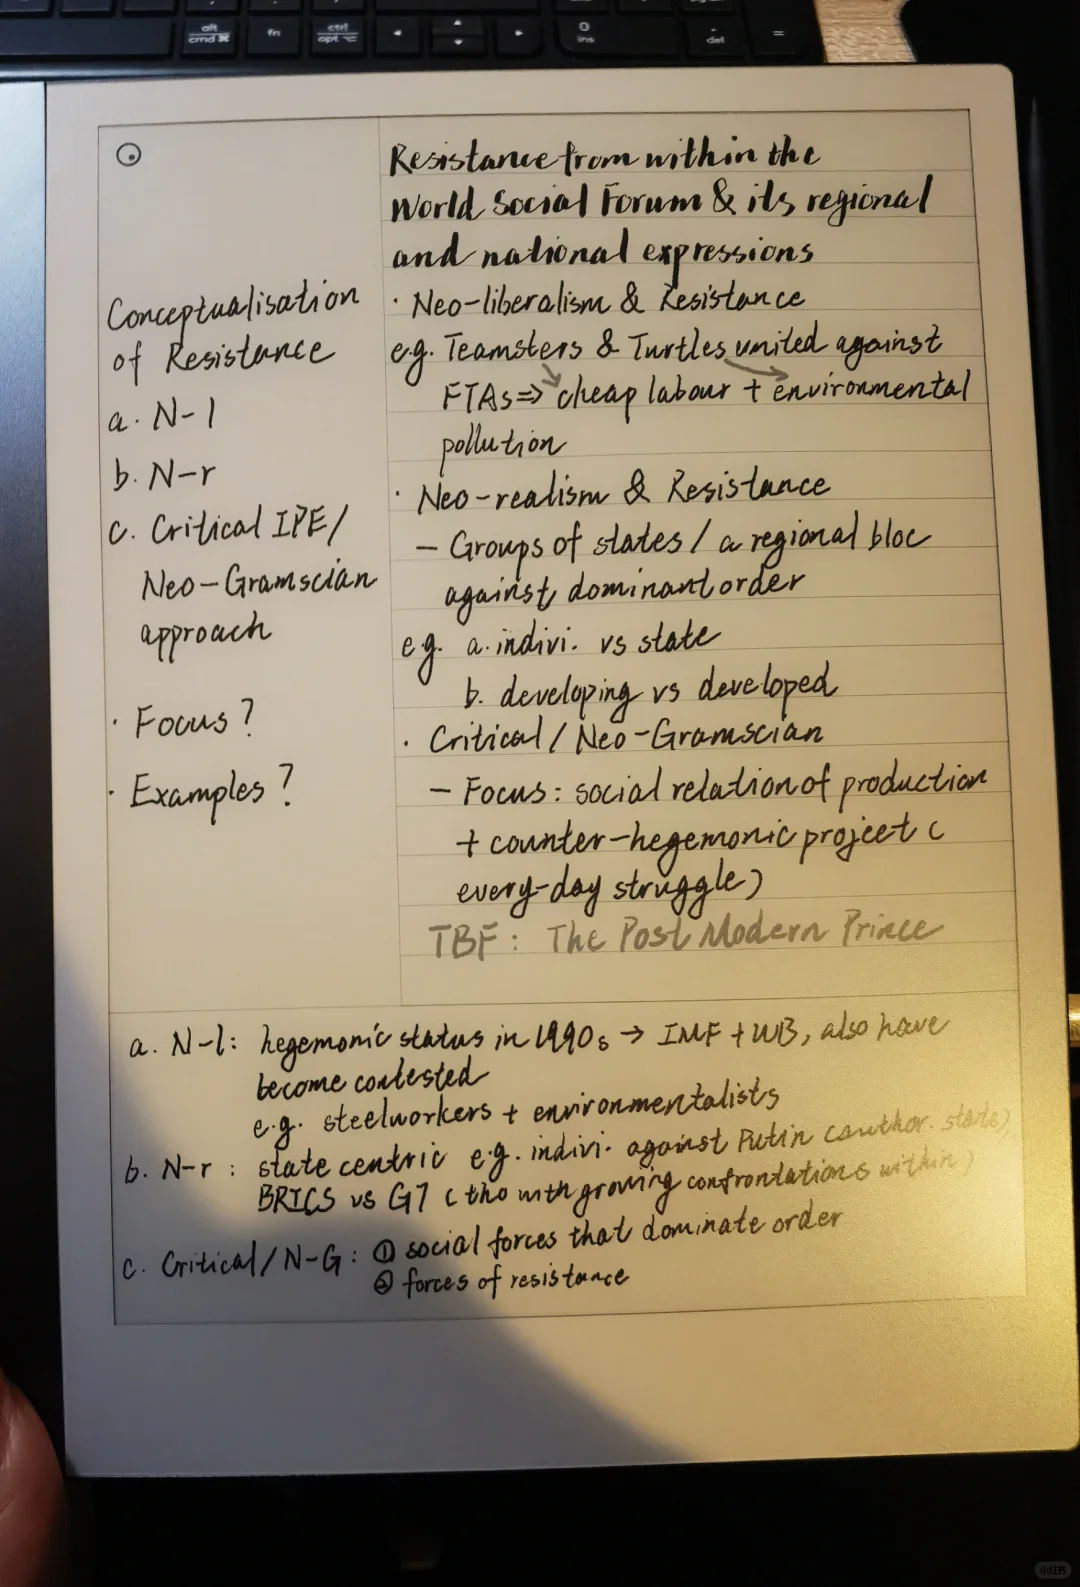 alt
cmd ⌘
fn
ctrl
opt ⌥
0
ins
.
del
=
Conceptualisation
of Resistance
a. N-l
b. N-r
c. Critical IPE/
Neo-Gramscian
approach
· Focus?
· Examples?
Resistance from within the
World Social Forum & its regional
and national expressions
· Neo-liberalism & Resistance
e.g. Teamsters & Turtles united against
FTAs => cheap labour + environmental
pollution
· Neo-realism & Resistance
— Groups of states / a regional bloc
against dominant order
e.g. a. indivi. vs state
b. developing vs developed
· Critical / Neo-Gramscian
— Focus: social relation of production
+ counter-hegemonic project (
every-day struggle)
TBF: The Post Modern Prince
a. N-l: hegemonic status in 1990s → IMF + WB, also have
become contested
e.g. steelworkers + environmentalists
b. N-r: state centric e.g. indivi. against Putin (author. state)
BRICS vs G7 (tho with growing confrontations within)
c. Critical/N-G: ① social forces that dominate order
② forces of resistance